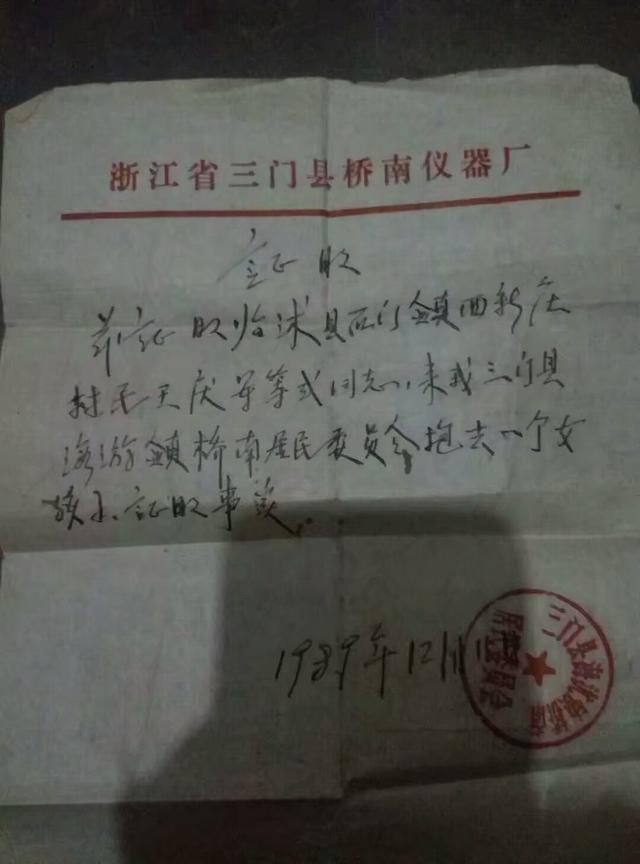 浙江省三门县桥南仪器厂
证明
兹证明临沭县石门镇西新庄
村民王庆等同志,来我三门县
海游镇桥南居民委员会抱去一个女
孩子、证明事实。
1989年12月11日
三门县海游镇桥南
居民委员会